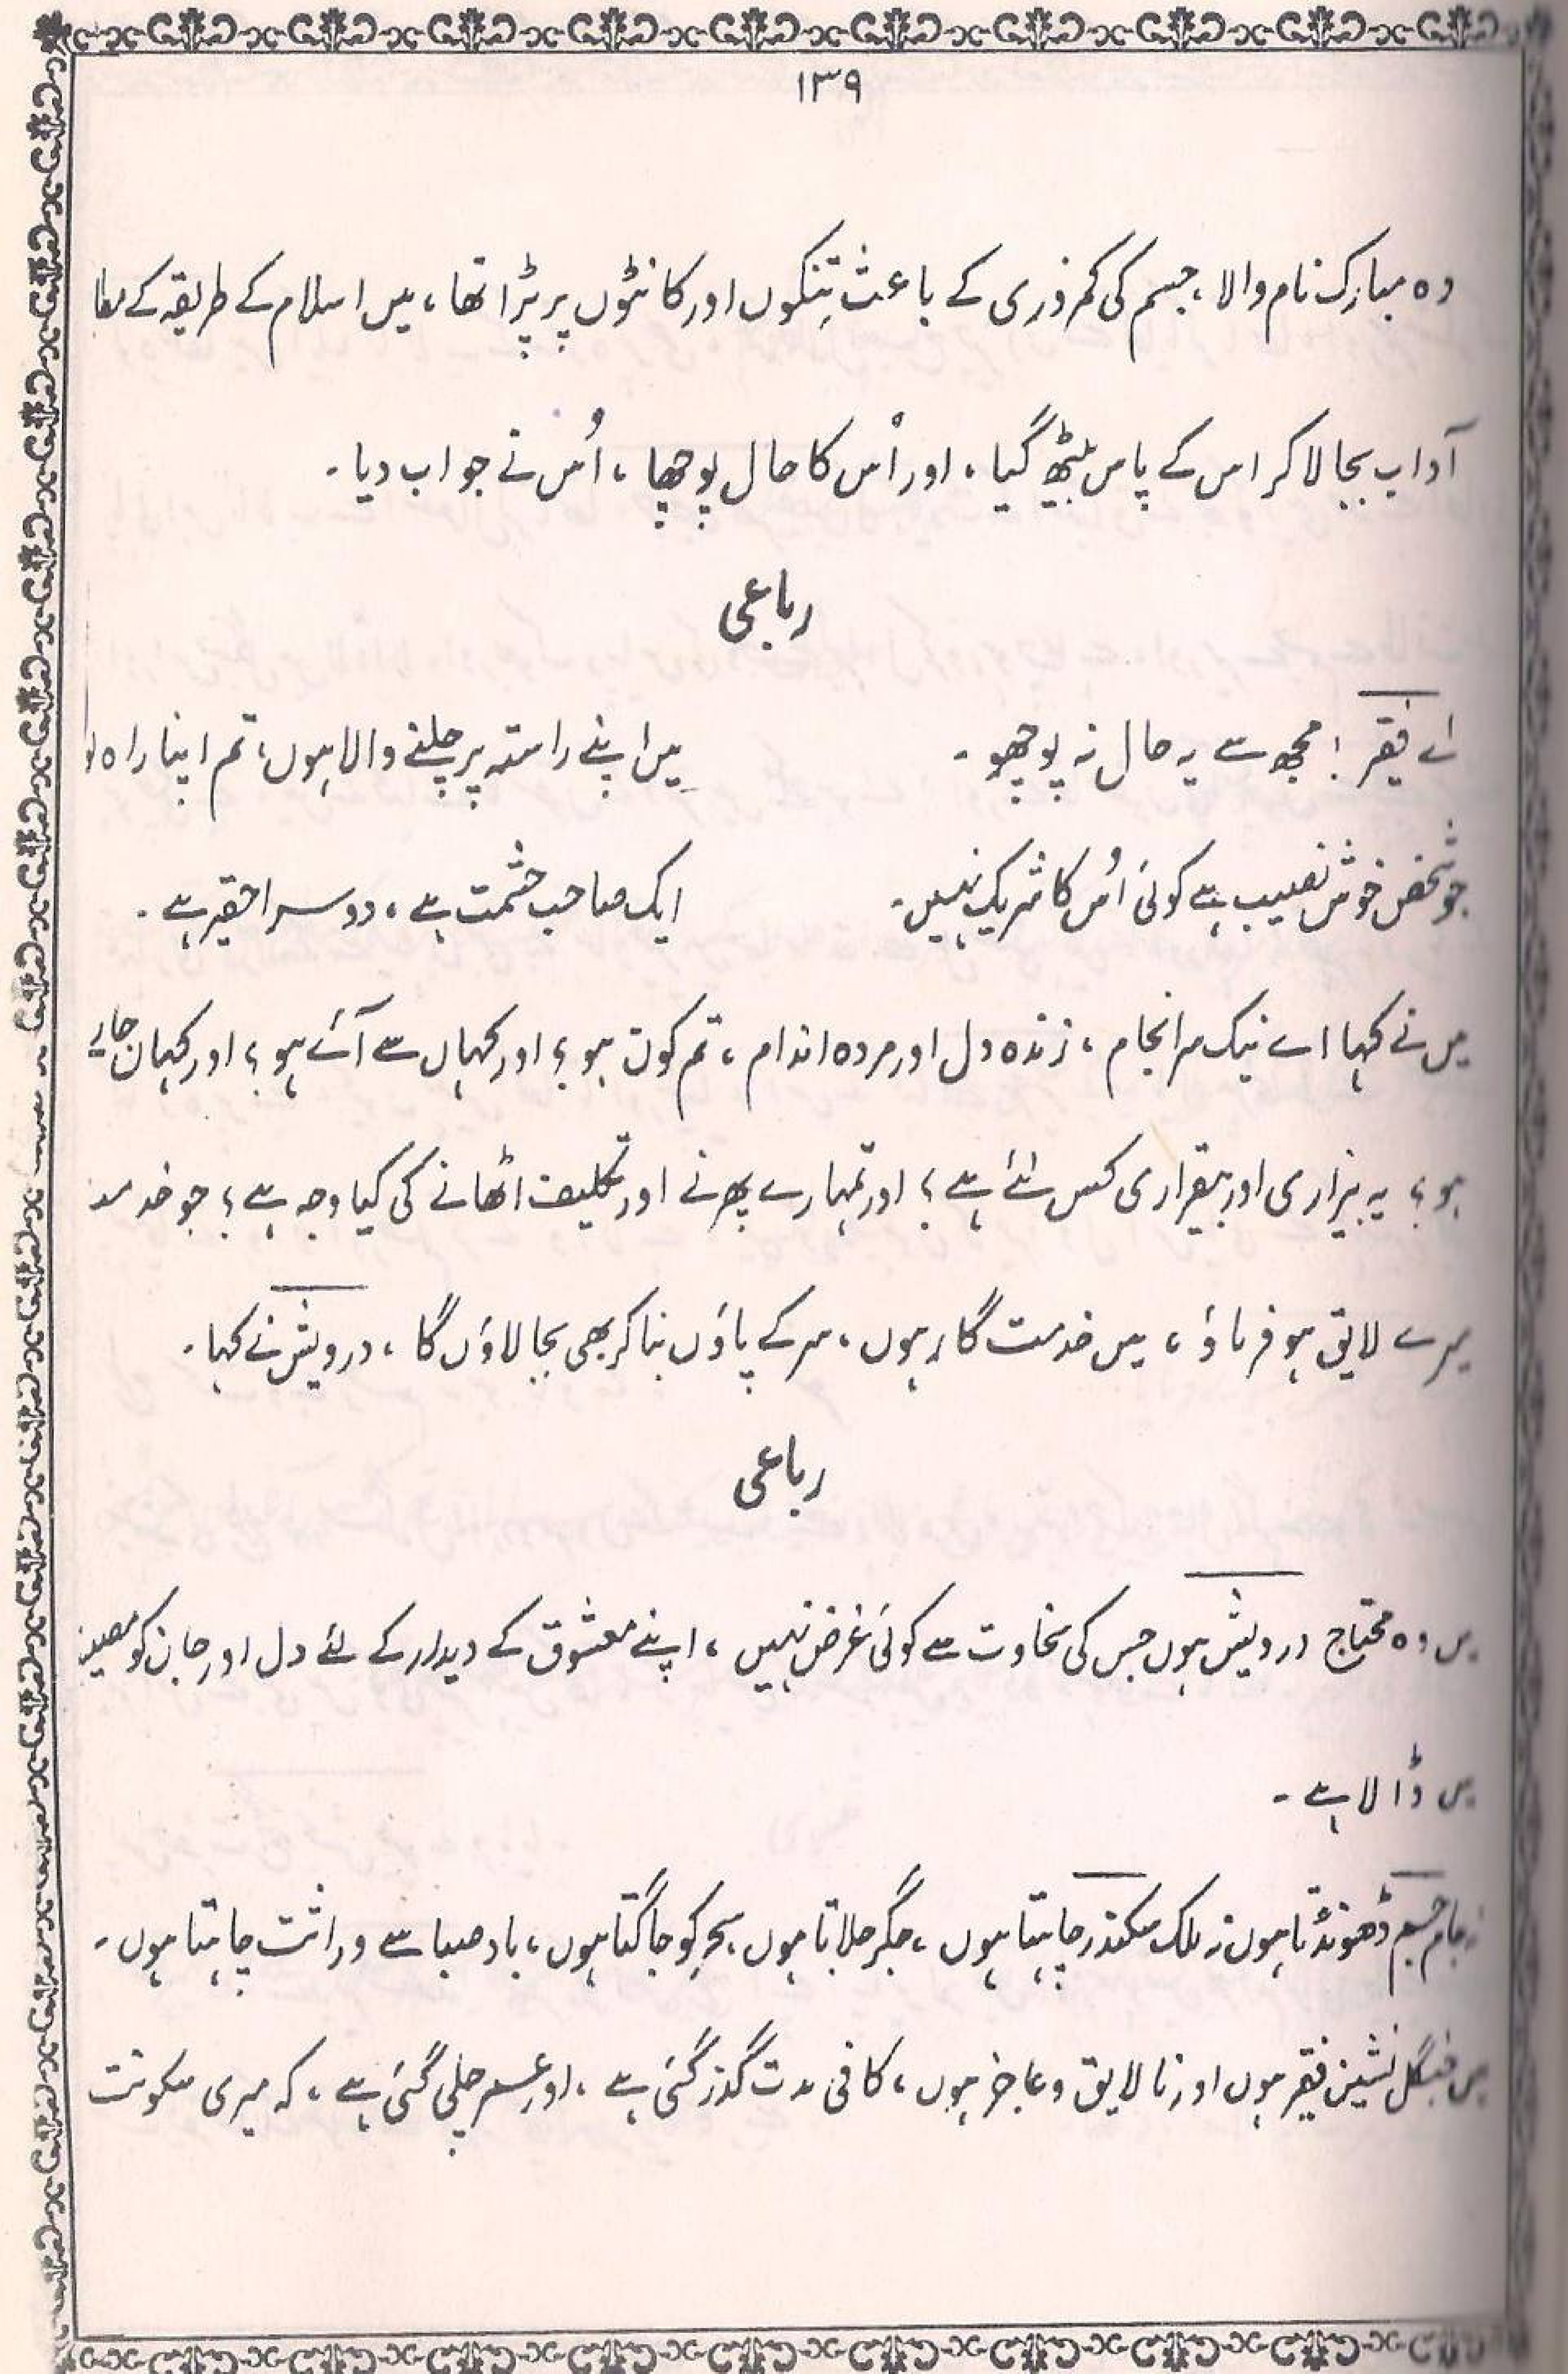 ۱۳۹
وہ مبارک نام والا، جسم کی کمزوری کے باعث تِنکوں اور کانٹوں پر پڑا تھا، میں اسلام کے طریقہ کے
آداب بجا لا کر اس کے پاس بیٹھ گیا، اور اُس کا حال پوچھا، اُس نے جواب دیا۔
رباعی
اے فقیر! مجھ سے یہ حال نہ پوچھو۔ میں اپنے راستہ پر چلنے والا ہوں، تم اپنا راہ لو
جو شخص خوش نصیب ہے کوئی اُس کا شریک نہیں۔ ایک صاحب حشمت ہے، دوسرا حقیر ہے۔
میں نے کہا اے نیک سرانجام، زندہ دل اور مردہ اندام، تم کون ہو؟ اور کہاں سے آئے ہو؟ اور کہاں جارہے
ہو؟ یہ بیزاری اور بیقراری کس لئے ہے؟ اور تمہارے پھرنے اور تکلیف اٹھانے کی کیا وجہ ہے؟ جو خدمت
میرے لایق ہو فرماؤ، میں خدمت گار ہوں، سر کے پاؤں بنا کر بھی بجا لاؤں گا، درویش نے کہا۔
رباعی
میں وہ محتاج درویش ہوں جس کی سخاوت سے کوئی غرض نہیں، اپنے معشوق کے دیدار کے لئے دل اور جان کو
میں ڈالا ہے۔
نہ جام جم ڈھونڈتا ہوں نہ ملک سکندر چاہتا ہوں، جگر جلاتا ہوں سحر کو جاگتا ہوں، باد صبا سے وراثت چاہتا ہوں۔
میں جنگل نشین فقیر ہوں اور نا لایق و عاجز ہوں، کافی مدت گذر گئی ہے، اور عمر چلی گئی ہے، کہ میری سکونت